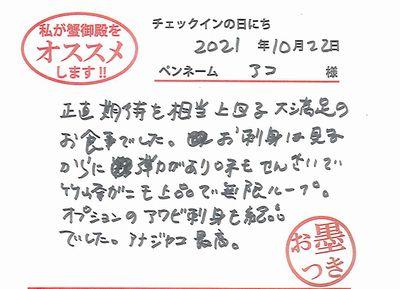 私が蟹御殿を
オススメ
します!!
チェックインの日にち
2021 年 10月 22日
ペンネーム アコ 様
正直期待を相当上回る大満足の
お食事でした。お刺身は見る
からに弾力があり味もせんさいで
竹崎ガニも上品で無限ループ。
オプションのアワビ刺身も絶品
でした。アナジャコ最高。
お墨つき